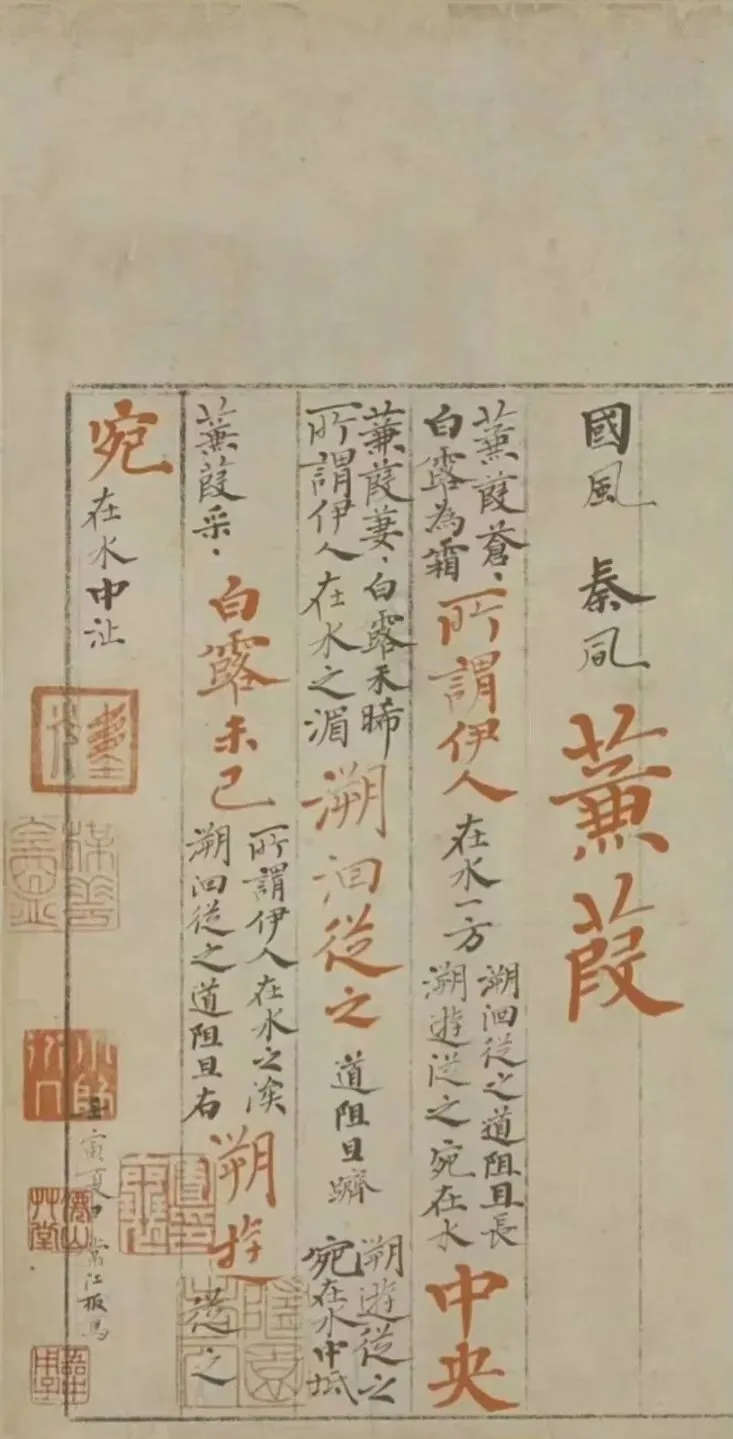 國風 秦風 蒹葭
蒹葭蒼、
白露為霜
所謂伊人
在水一方
溯洄從之道阻且長
溯遊從之宛在水
中央
蒹葭萋、白露未晞
所謂伊人在水之湄
溯洄從之
道阻且躋
溯遊從之
宛在水中坻
蒹葭采、
白露未已
所謂伊人在水之涘
溯洄從之道阻且右
溯遊從之
宛在水中沚
寅夏